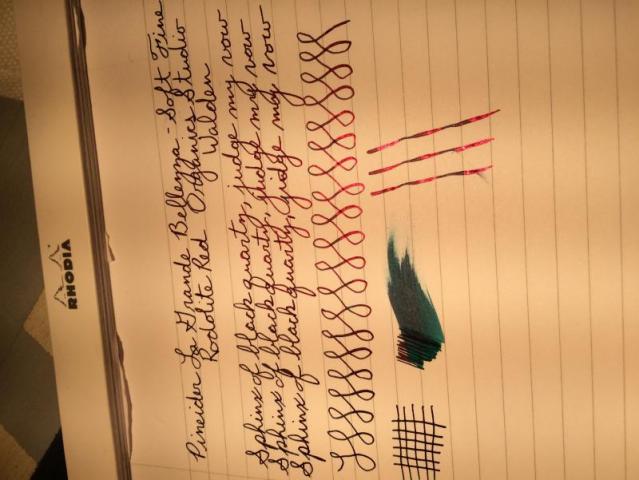 RHODIA
Pineider La Grande Bellezza - Soft Fine
Rodolite Red Organics Studio
Walden
Sphinx of black quartz, judge my vow
Sphinx of black quartz, judge my vow
Sphinx of black quartz, judge my vow